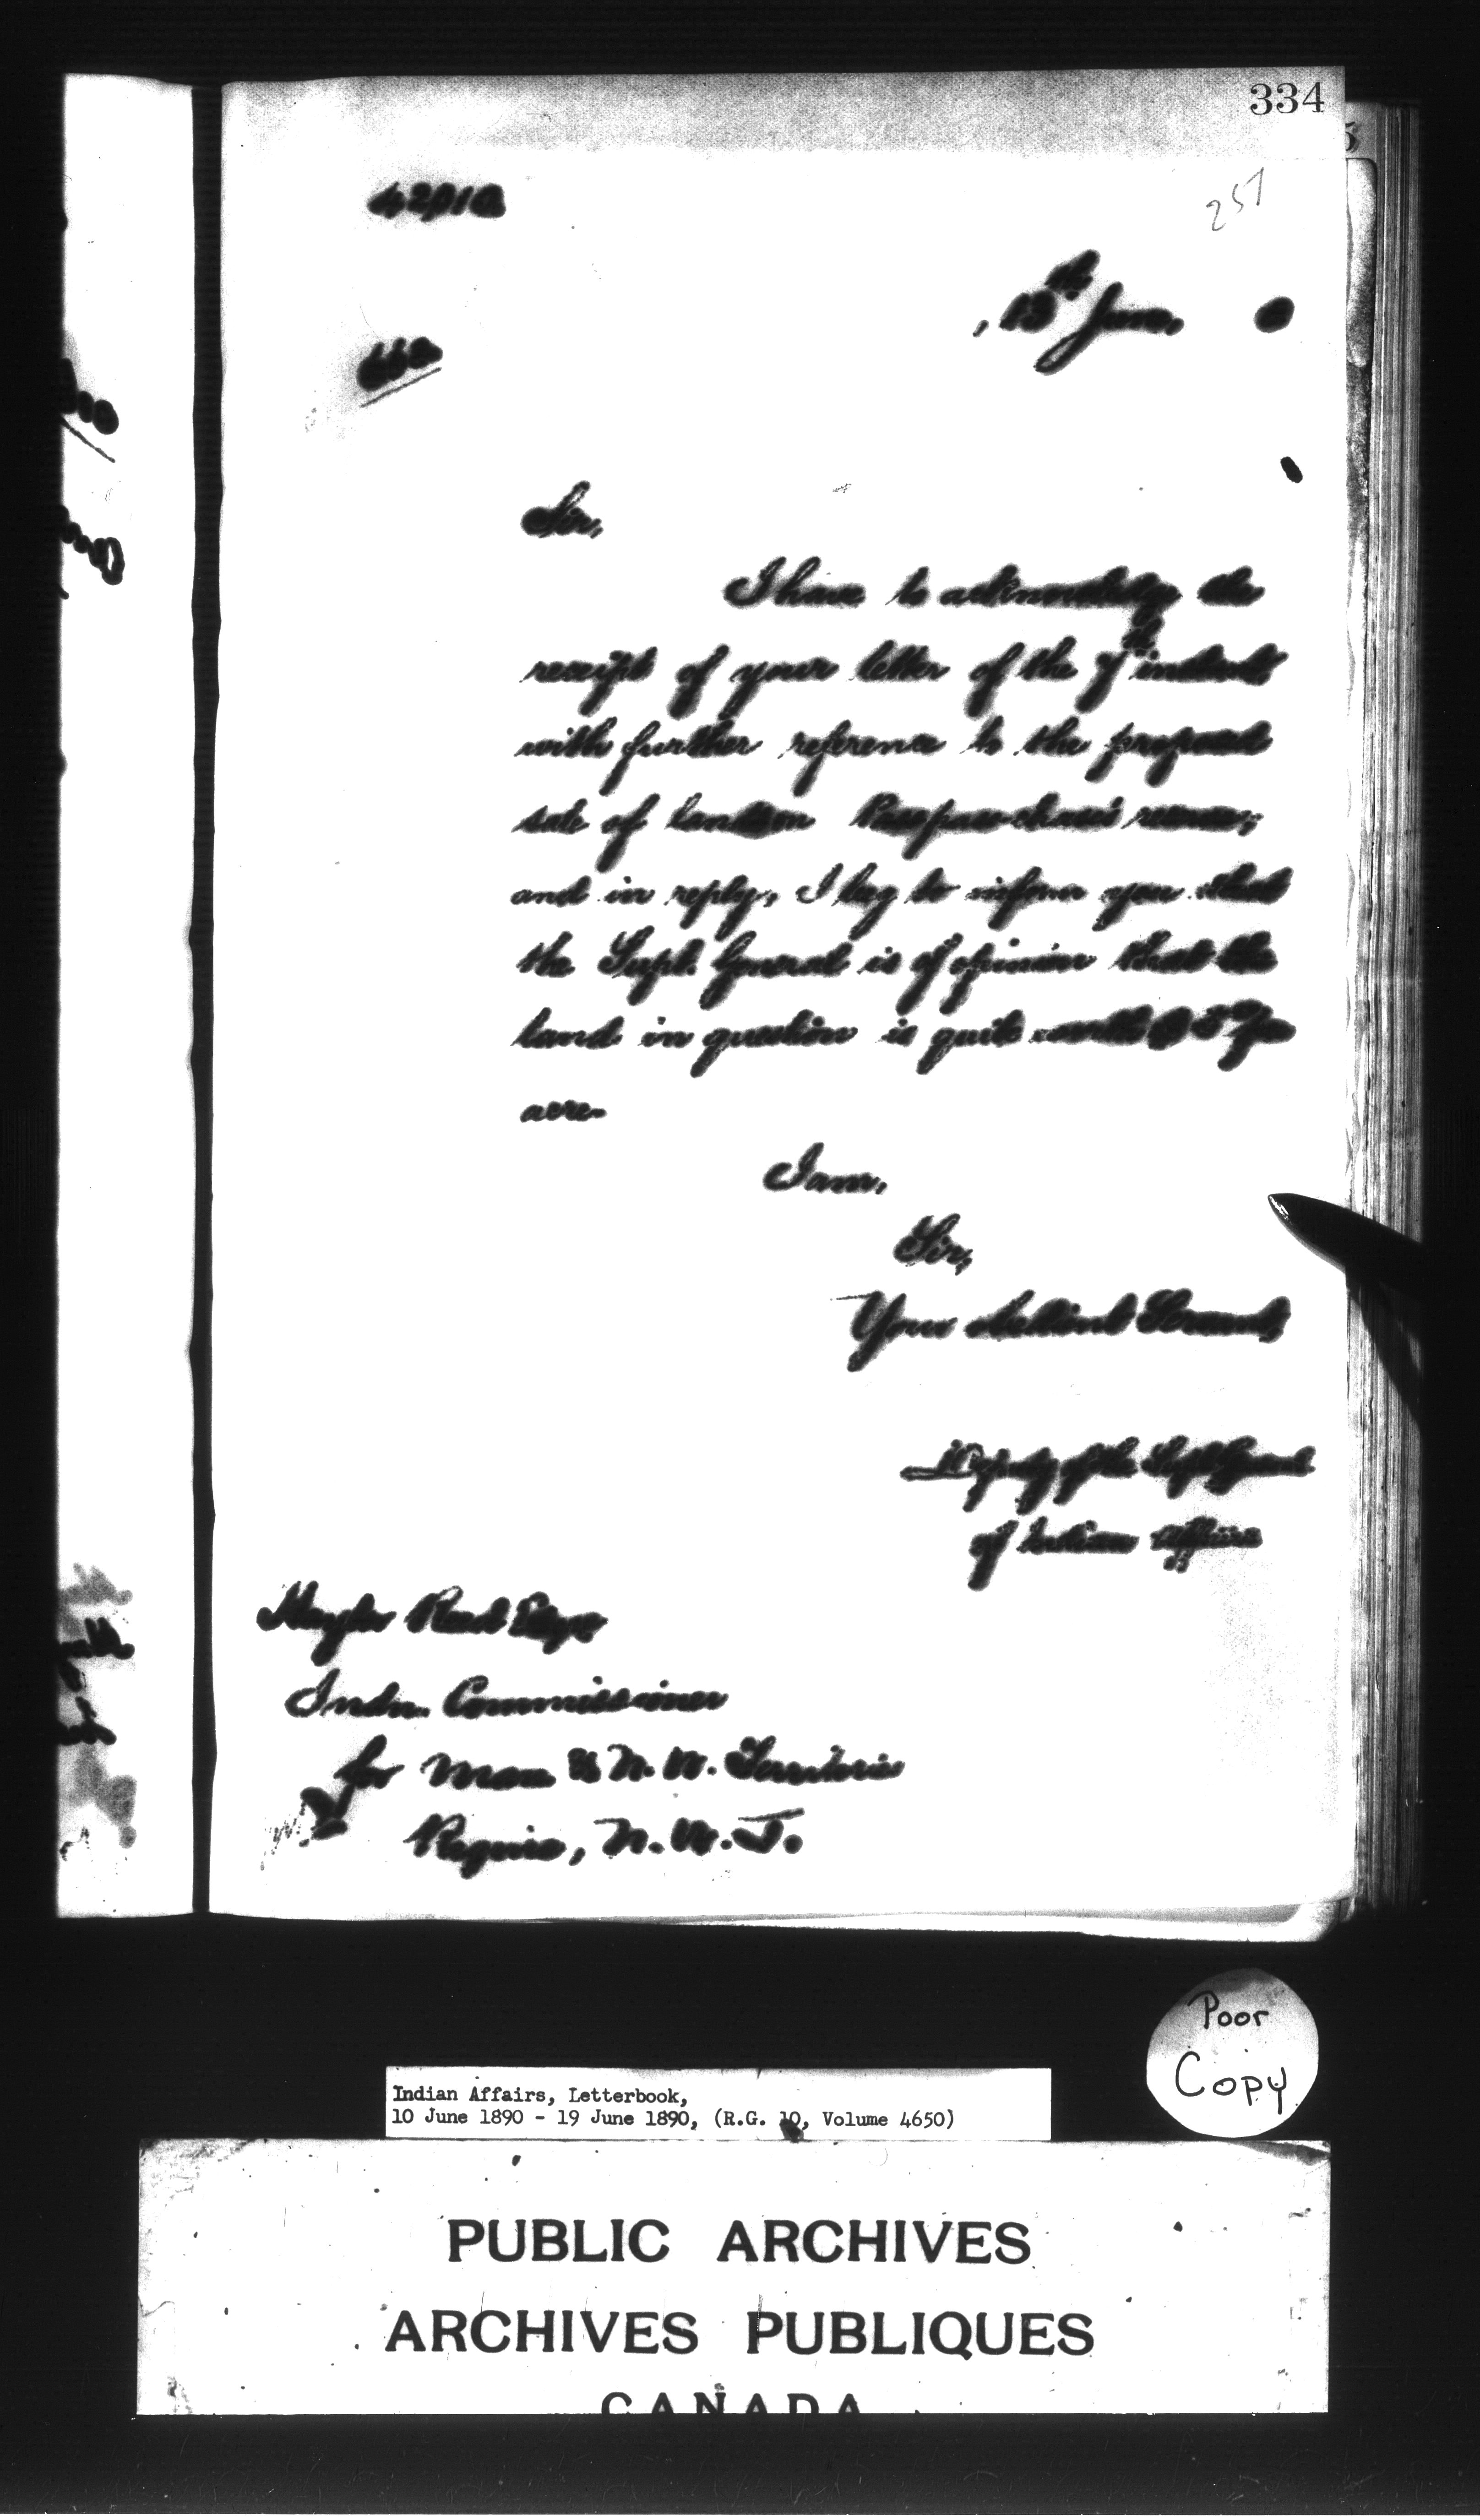 334
257
13th June, 0
Sir,
I have to acknowledge the
receipt of your letter of the 7th instant
with further reference to the proposed
sale of land on reserve;
and in reply, I beg to inform you that
the Supt. General is of opinion that the
land in question is quite worth $5 per
acre.
I am,
Sir,
Your obedient Servant,
Deputy of the Supt General
of Indian Affairs
Hayter Reed Esqre
Indn. Commissioner
for Man & N. W. Territories
Regina, N. W. T.
Poor
Copy
Indian Affairs, Letterbook,
10 June 1890 - 19 June 1890, (R.G. 10, Volume 4650)
PUBLIC ARCHIVES
ARCHIVES PUBLIQUES
CANADA